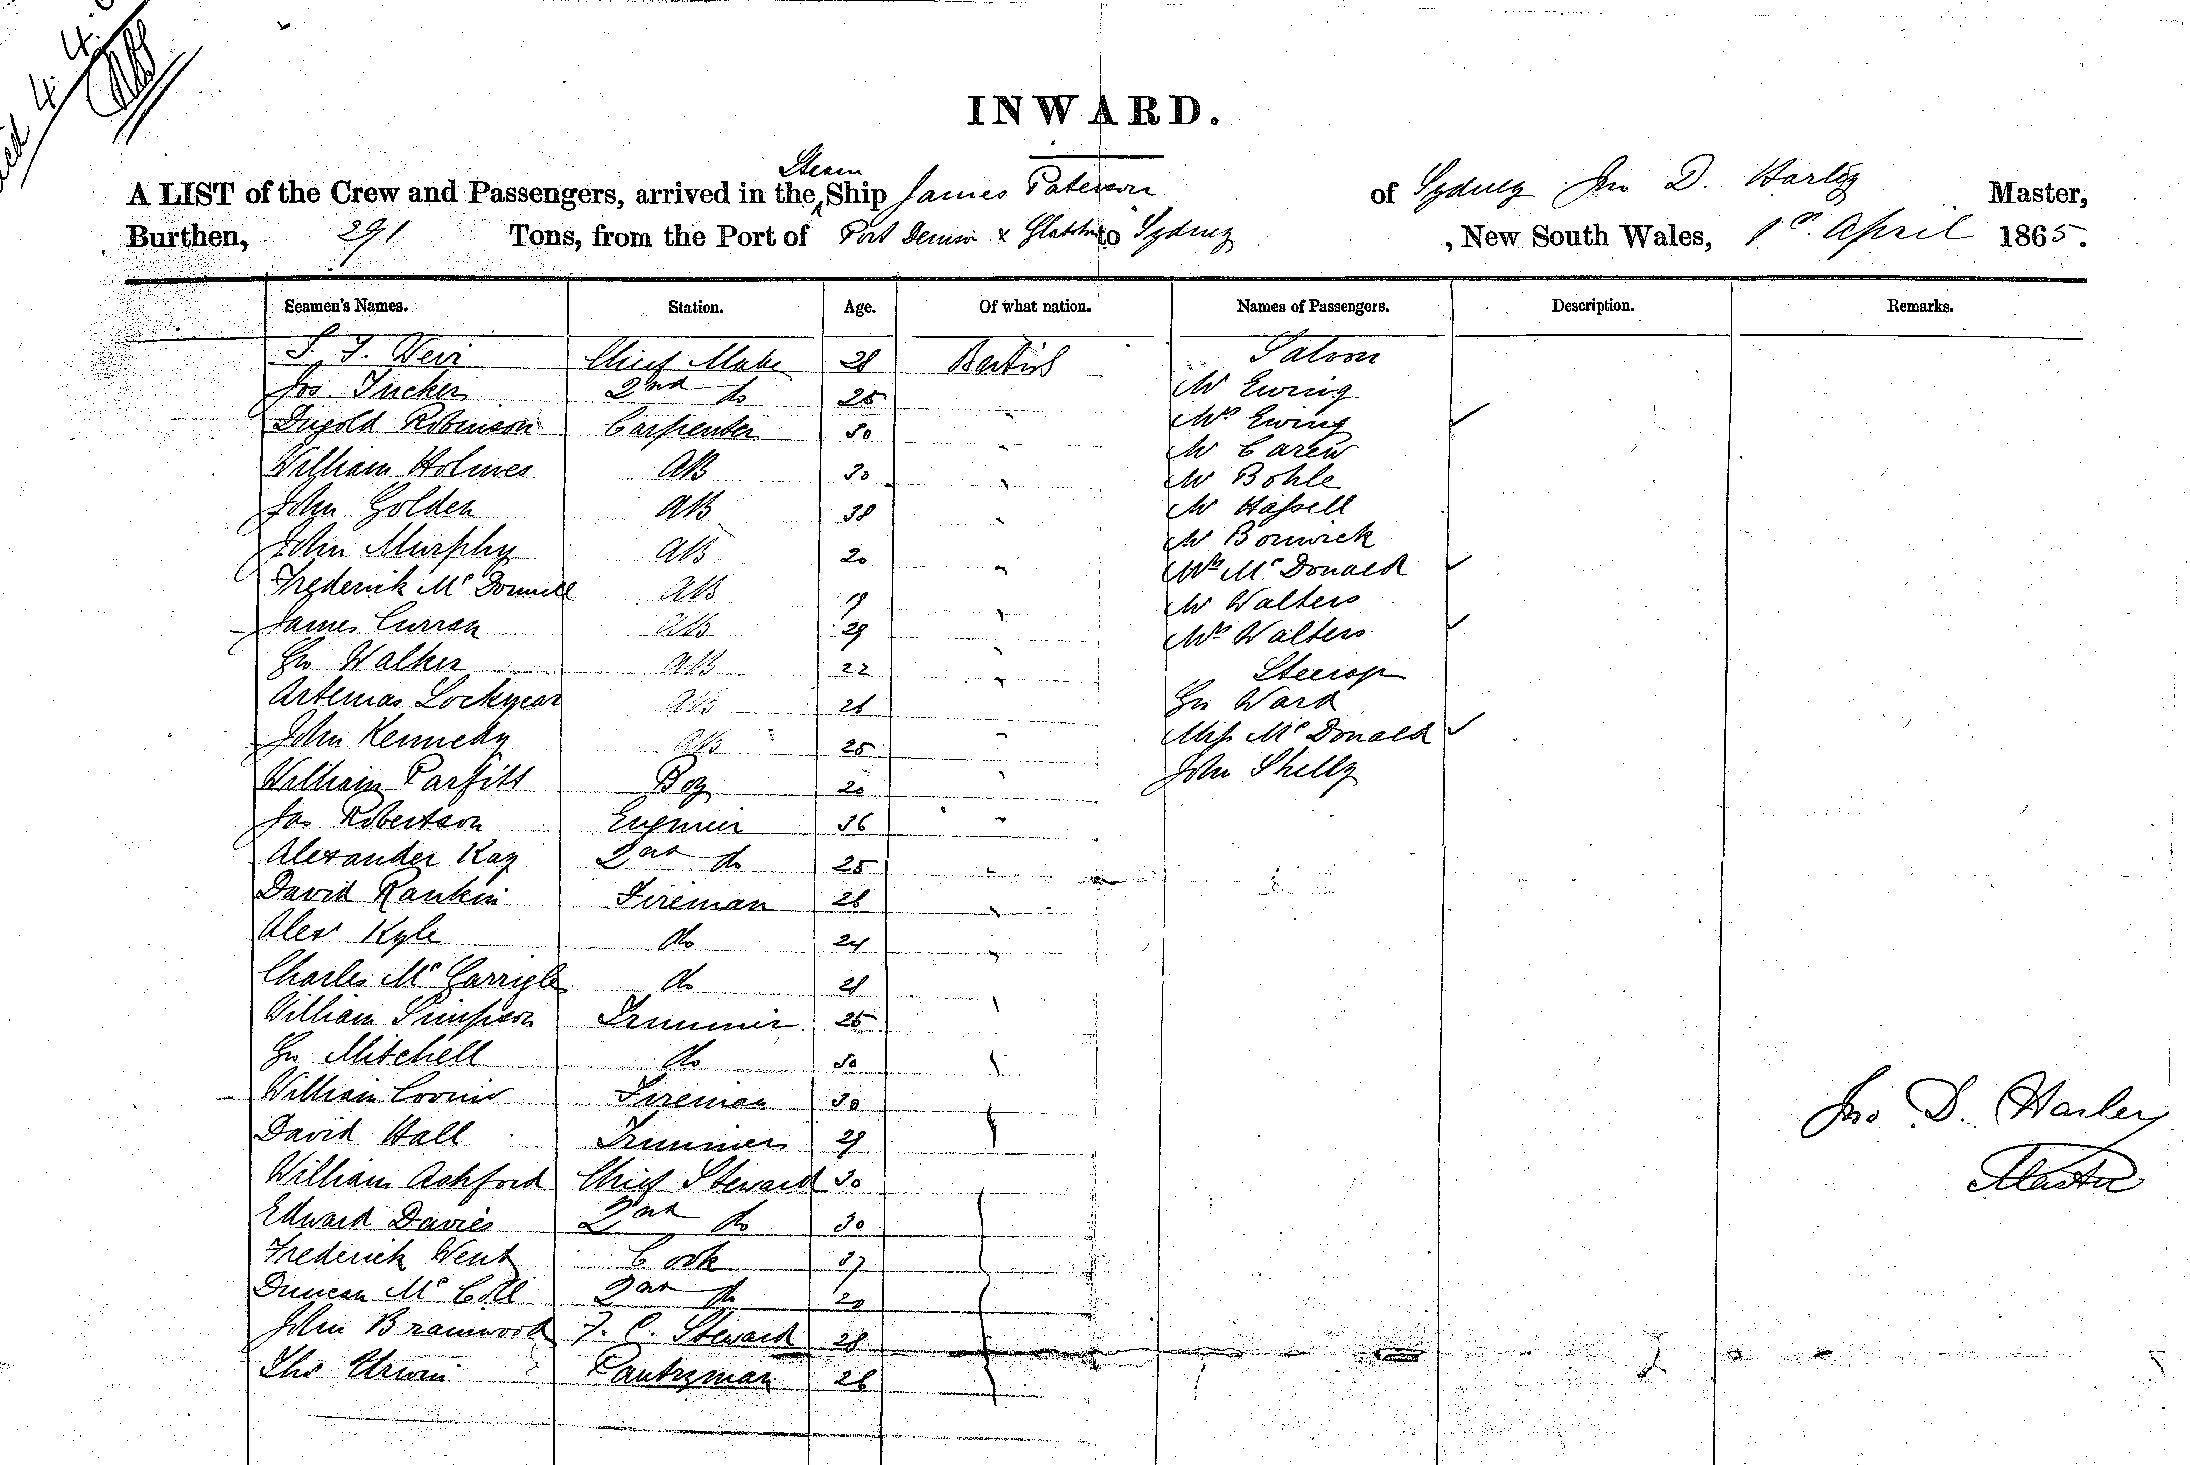 4.4.6
INWARD.
A LIST of the Crew and Passengers, arrived in the Steam Ship James Paterson of Sydney Jno D. Harley Master,
Burthen, 291 Tons, from the Port of Port Denison & to Sydney, New South Wales, 1st April 1865.
Seamen's Names. Station. Age. Of what nation. Names of Passengers. Description. Remarks.
S. J. Chief Mate 28 British Saloon
Jos. Tucker 2nd do 25 Mr Ewing
Dugold Robinson Carpenter 30 " Mrs Ewing ✓
William Holmes AB 30 " Mr Carew
Mr Bohle
John Golden AB 38 " Mr Hassell
John Murphy AB 20 " Mr Bonwick
Frederick McDonnell AB 19 " Mrs McDonald ✓
Mr Walters
James Curran AB 29 " Mrs Walters ✓
Geo Walker AB 22 " Steerage
Artemas Lockyear AB 26 Geo Ward
John Kennedy AB 25 " Miss McDonald ✓
William Parfitt Boy 20 " John Shelly
Jas Robertson Engineer 36 "
Alexander Kay 2nd do 25 "
David Rankin Fireman 26 "
Alex Kyle do 24 "
Charles McGarrigle do 21 "
William Simpson Trimmer 25 "
Geo Mitchell do 30 "
William Fireman 30
David Hall Trimmer 29
William Ashford Chief Steward 30
Edward Davies 2nd do 30
Frederick Went Cook 37
Duncan McColl 2nd do 20
John Bramwood F. C. Steward 28
Thos Urwin Pantryman 26
Jno D. Harley
Master